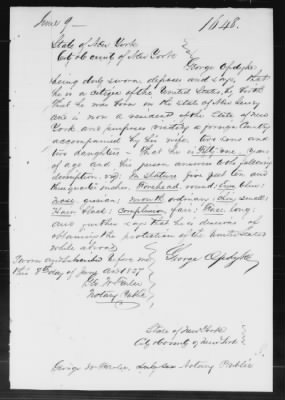 June 9 — 1648.
State of New York
City & County of New York
George Opdyke,
being duly sworn deposes and says, that
he is a citizen of the United States, by birth
that he was born in the state of New Jersey
and is now a resident of the State of New
York and purposes visiting a foreign country
accompanied by his wife, two sons and
two daughters — That he is Fifty one years
of age and his person answers to the following
description, viz: In stature five feet ten and
three quarter inches. Forehead round: blue:
nose mouth ordinary: chin small:
Hair Black: complexion fair: Face long:
and further says that he is desirous of
obtaining the protection of the United States
while abroad.
Sworn and subscribed before me George Opdyke
this 8th day of June 1857
Geo W
Notary Public
State of New York
City & County of New York
George W Notary Public